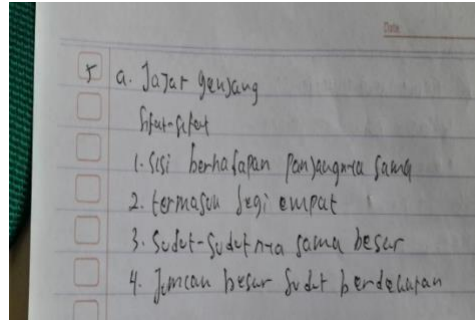 Date
5 a. Jajar genjang
Sifat-sifat
1. sisi berhadapan panjangnya sama
2. termasuk segi empat
3. Sudut-sudutnya sama besar
4. Jumlah besar sudut berdekatan